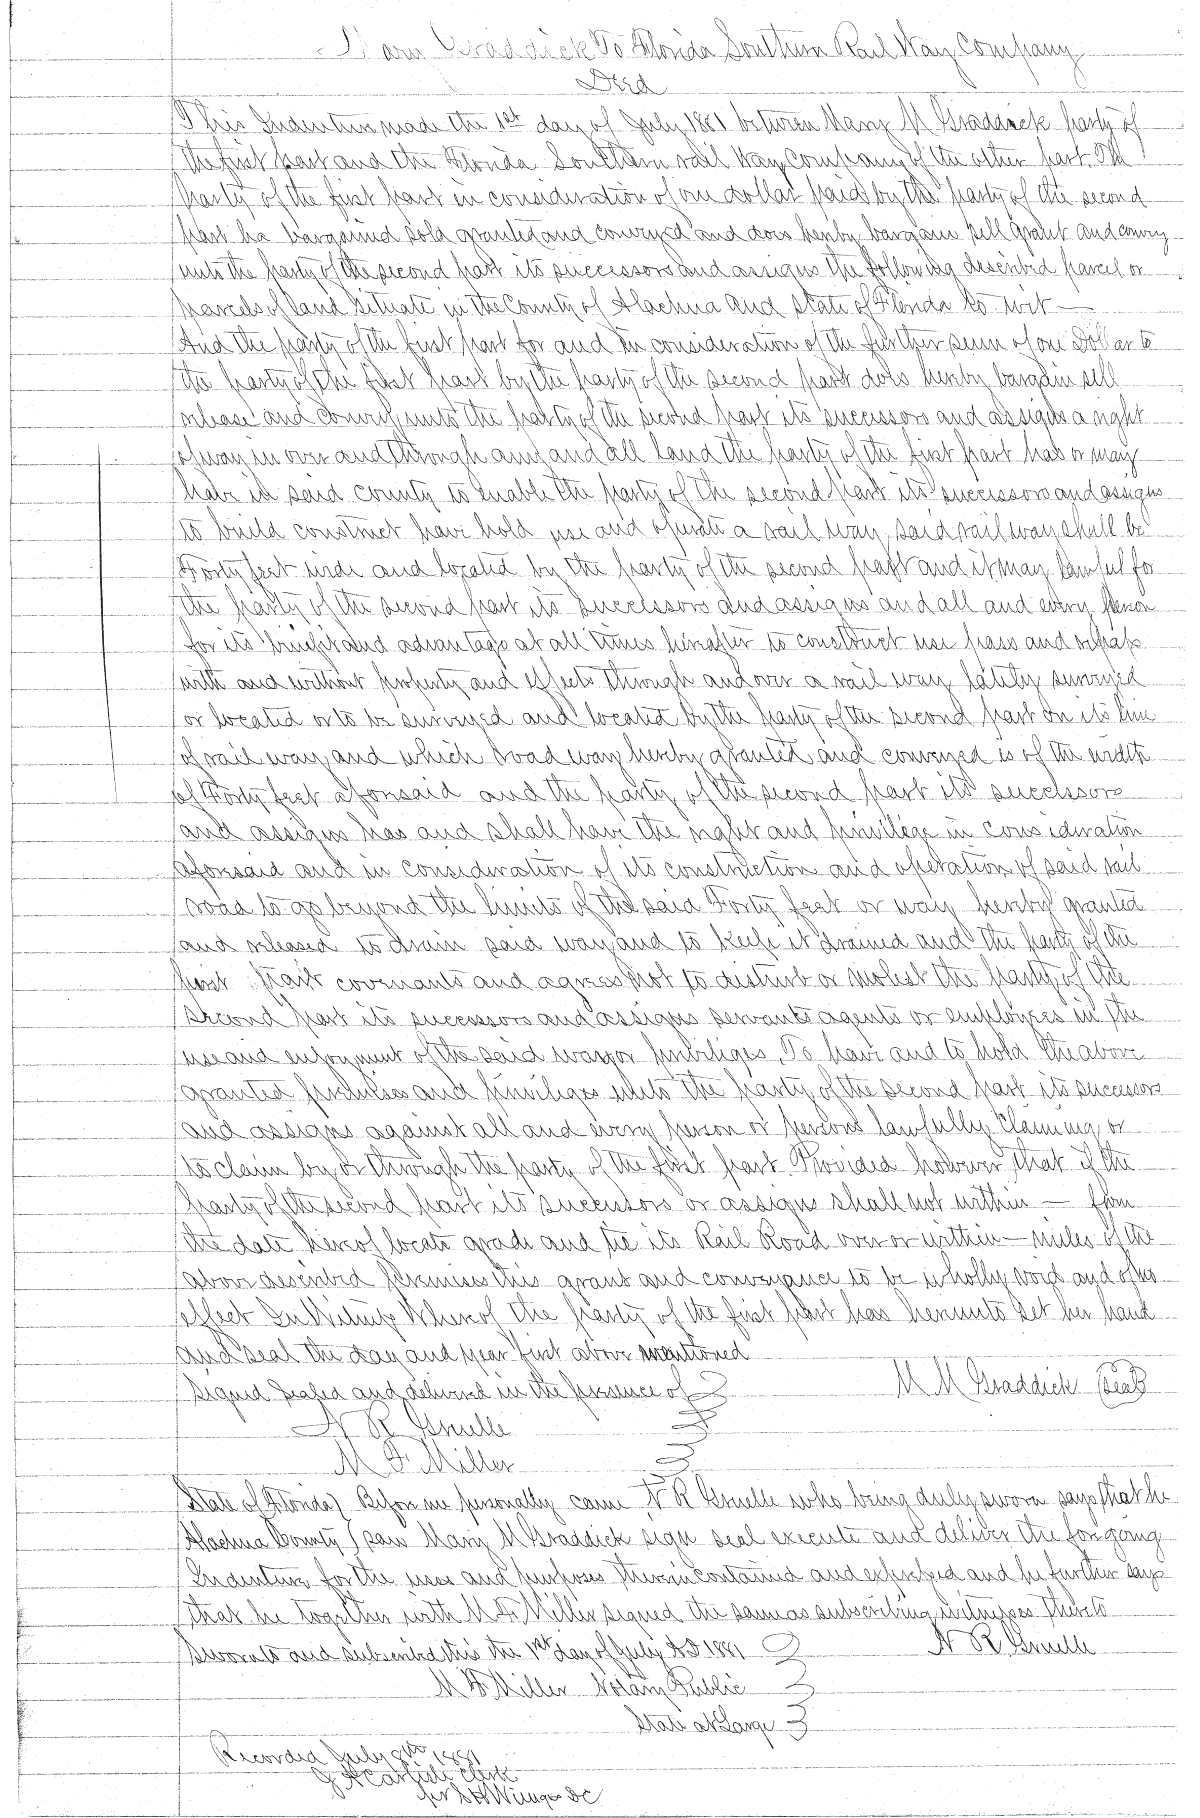 Mary Graddick To Florida Southern Rail Way Company
Deed
This Indenture made the 1st day of July 1881 between Mary M Graddick party of
the first part and the Florida Southern rail Way Company of the other part. The
party of the first part in consideration of one dollar paid by the party of the second
part ha bargained sold granted and conveyed and does hereby bargain sell grant and convey
unto the party of the second part its successors and assigns the following described parcel or
parcels of land situate in the County of Alachua and State of Florida to wit —
And the party of the first part for and in consideration of the further sum of one Dollar to
the party of the first part by the party of the second part does hereby bargain sell
release and convey unto the party of the second part its successors and assigns a right
of way in over and through any and all land the party of the first part has or may
have in said county to enable the party of the second part its successors and assigns
to build construct have hold use and operate a rail way, said rail way shall be
Forty feet wide and located by the party of the second part and it may lawful for
the party of the second part its successors and assigns and all and every person
for its benefit and advantage at all times hereafter to construct use pass and repass
with and without property and effects through and over a rail way lately surveyed
or located or to be surveyed and located by the party of the second part on its line
of rail way and which road way hereby granted and conveyed is of the width
of Forty feet aforesaid and the party of the second part its successors
and assigns has and shall have the right and privilege in consideration
aforesaid and in consideration of its construction and operation of said rail
road to go beyond the limits of the said Forty feet or way hereby granted
and released to drain said way and to keep it drained and the party of the
first part covenants and agrees not to disturb or molest the party of the
second part its successors and assigns servants agents or employees in the
use and enjoyment of the said way or priviliges, To have and to hold the above
granted premises and priviliges unto the party of the second part its successors
and assigns against all and every person or persons lawfully claiming or
to claim by or through the party of the first part. Provided however, that if the
party of the second part its successors or assigns shall not within — from
the date hereof locate grade and tie its Rail Road over or within — miles of the
above described premises this grant and conveyance to be wholly void and of no
effect In Witness Whereof the party of the first part has hereunto set her hand
and seal the day and year first above mentioned
Signed Sealed and delivered in the presence of } M M Graddick (Seal)
N R Gruelle
M F Miller
State of Florida } Before me personally came N R Gruelle who being duly sworn says that he
Alachua County } saw Mary M Graddick sign seal execute and deliver the foregoing
Indenture for the uses and purposes therein contained and expressed and he further says
that he together with M F Miller signed the same as subscribing witnesses thereto
Sworn to and subscribed this the 1st day of July AD 1881 } N R Gruelle
M F Miller Notary Public
State at Large
Recorded July 8th 1881
J A Carlisle Clerk
per DC